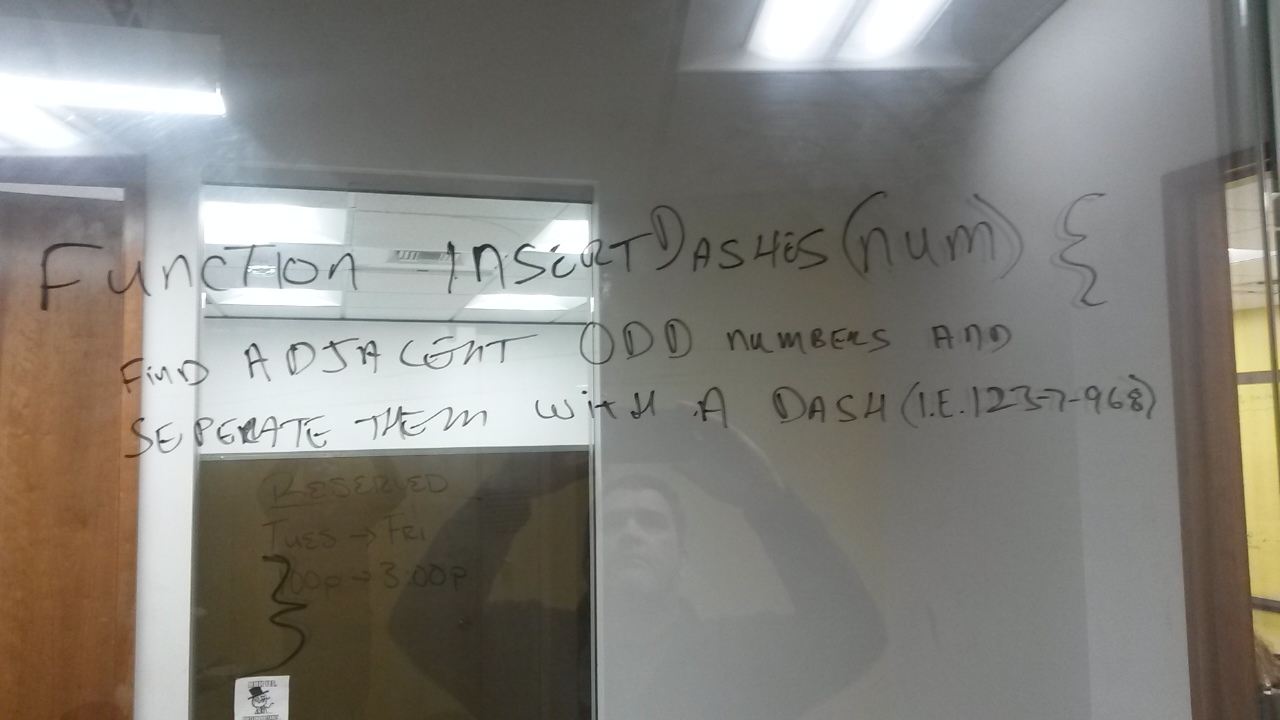 FUNCTION INSERTDASHES(num) {
FIND ADJACENT ODD NUMBERS AND
SEPERATE THEM WITH A DASH (I.E. 1235-7-968)
RESERVED
TUES → FRI
:00P → 3:00P
}